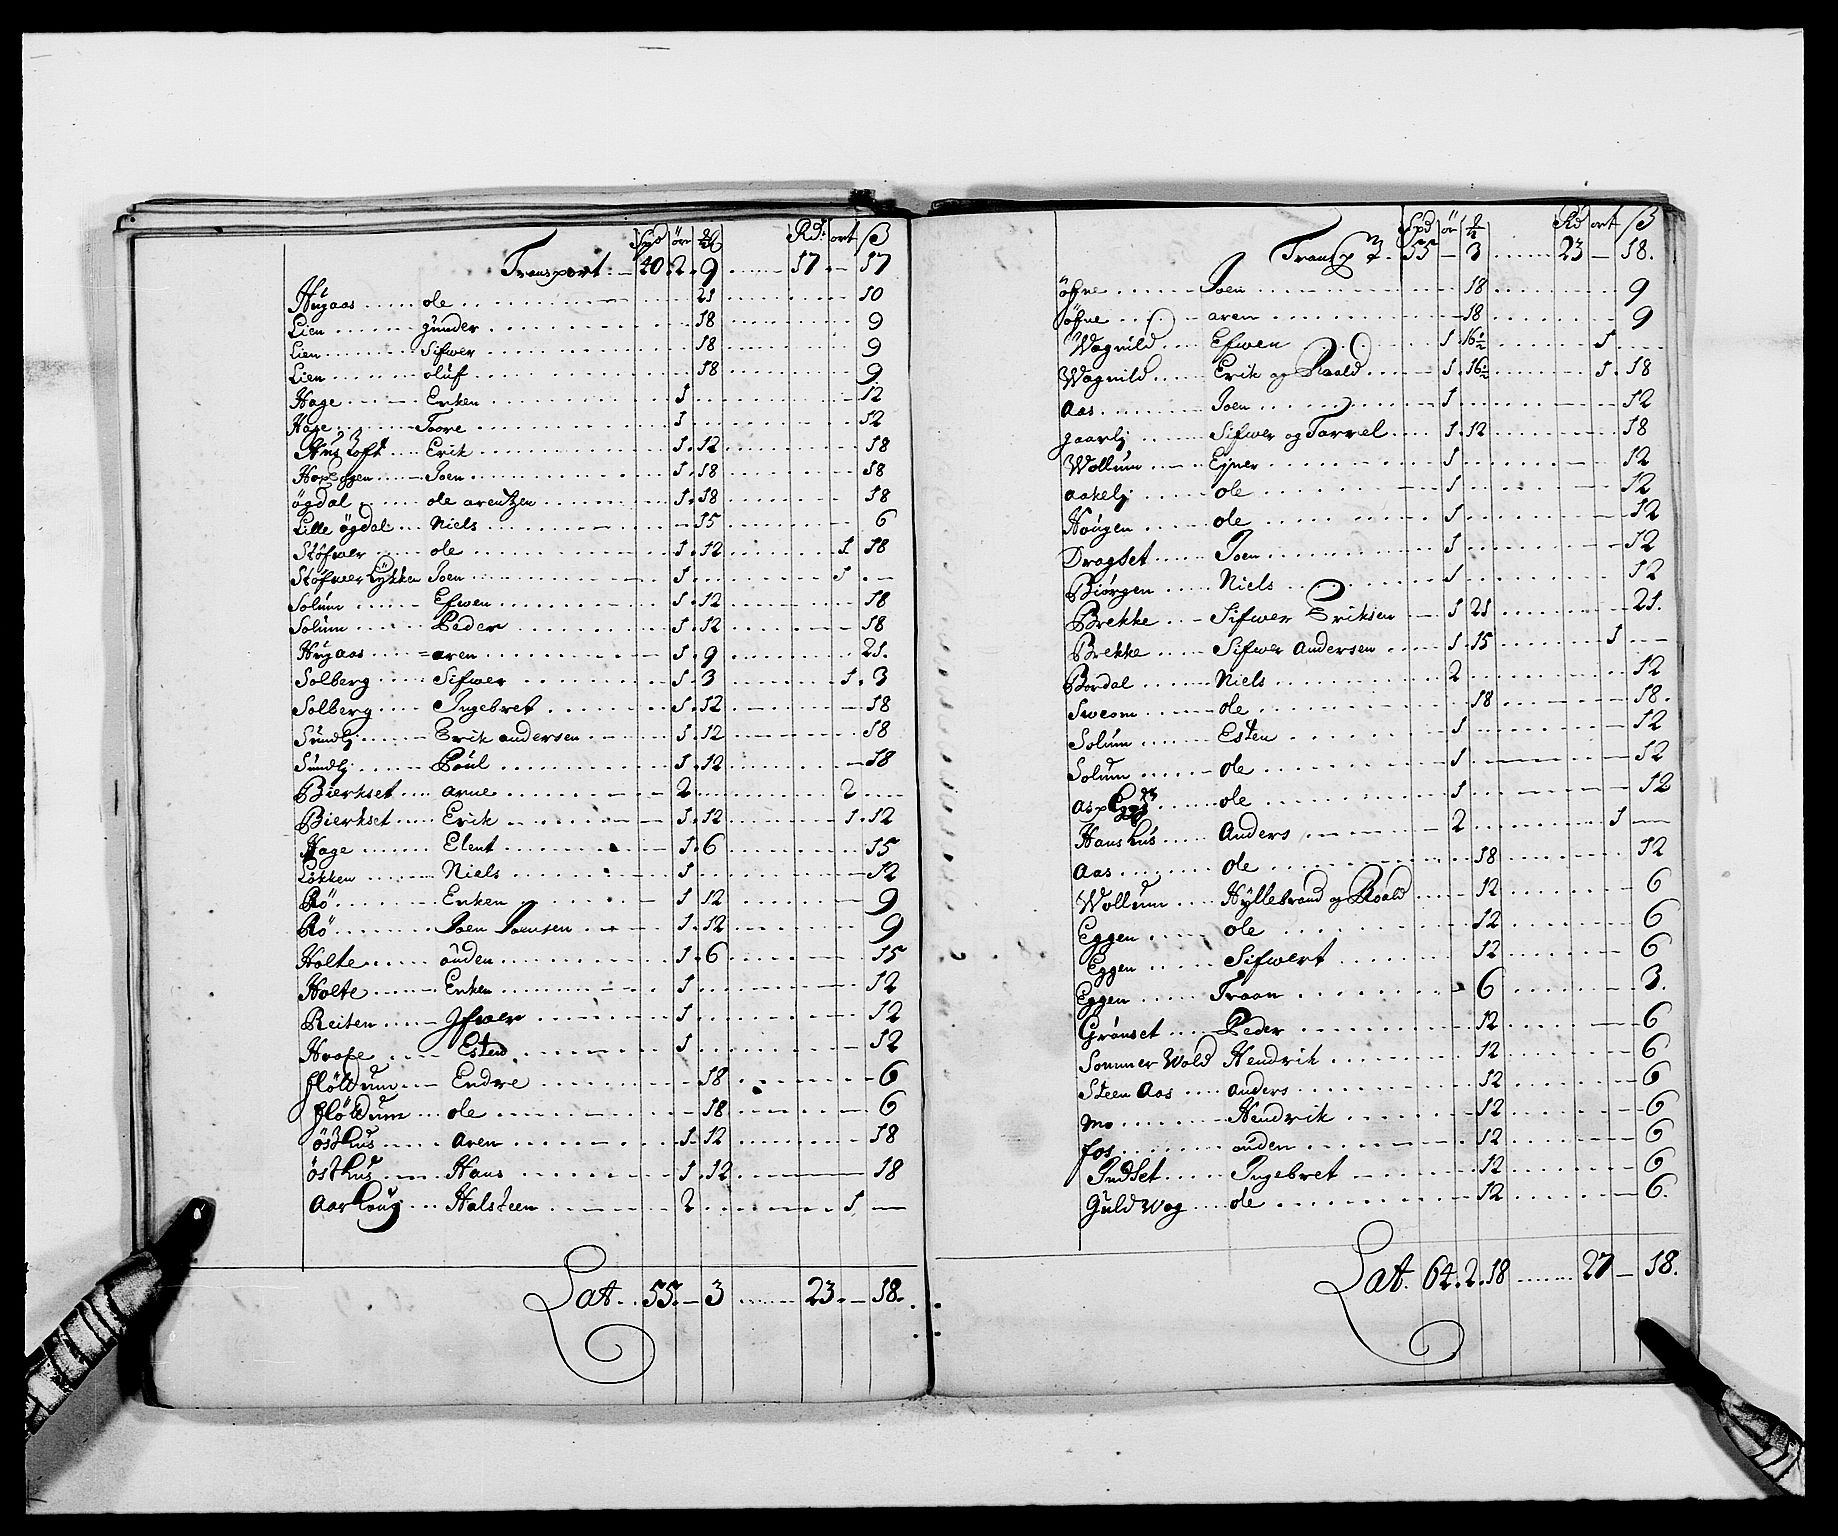 Spd öre Rd: ort ß
Transport. 40. 2. 9 17 — 17
Hugaas ole 21 10
Lien gunder 18 9
Lien Sifwer 18 9
Lien oluf 18 9
Hage Enken 1 12
Hage Toore 1 12
Erik 1. 12 18
Joen 1. 18 18
ögdal ole arentzen 1. 18 18
Lille ögdal Niels 15 6
Stöfwer ole 1. 12 1 18
Stöfwer Lykken Joen 1 1 —
Solum Efwen 1. 12 18
Solum Peder 1. 12 18
Hugaas aren 1. 9 21.
Solberg Sifwer 1. 3 1. 3
Solberg Ingebret 1. 12 18
Sundlj Erik andersen 1. 12 18
Sundlj Poul 1. 12 18
Bierkset arne 2 2 —
Bierkset Erik 1. 12 1. 12
Hage Elent 1. 6 15
Lökken Niels 1 12
Rö Enken 1 12 9
Rö Joen Joensen 1. 12 9
Holte ouden 1. 6 15
Holte Enken 1 12
Reiten Ifwer 1 12
Hoofe Esten 1 12
flöttum Endre 18 6
flöttum ole 18 6
östhus Aren 1. 12 18
östhus Hans 1. 12 18
Aarhoug Halsteen 2 1 —
Lat. 55. — 3 23. — 18.
Spd ör Rd ort ß
Transp 55 — 3 23 — 18.
öfne Joen 18 9
öfne aren 18 9
Wagnild Efwen 1. 16½ 1
Wagnild Erik og Roald 1. 16½ 1. 18
Aas Joen 1 12
gaarlj Sifwer og Tarrel 1. 12 18
Wollum Ejner 1 12
aakelj ole 1 12
Hougen ole 1 12
Dragset Joen 1 12
Biörgen Niels 1 12
Brekke Sifwer Eriksen 1 21 21.
Brekke Sifwer Andersen 1. 15 1 —
Bordal Niels 2 12
Sweem ole 18 18.
Solum Esten 1 12
Solum ole 1 12
ole 1 12
Hanshus Anders 2 1 —
Aas ole 18 12
Wollum Hyllebrand og Roald 12 6
Eggen ole 12 6
Eggen Sifwert 12 6
Eggen Traan 6 3.
Grönset Peder 12 6
Sommer Wold Hendrik 12 6
Steen Aas anders 12 6
Mo Hendrik 12 6
fos ouden 12 6
Indset Ingebret 12 6
Guld Wog ole 12 6.
Lat. 64. 2. 18 27 — 18.